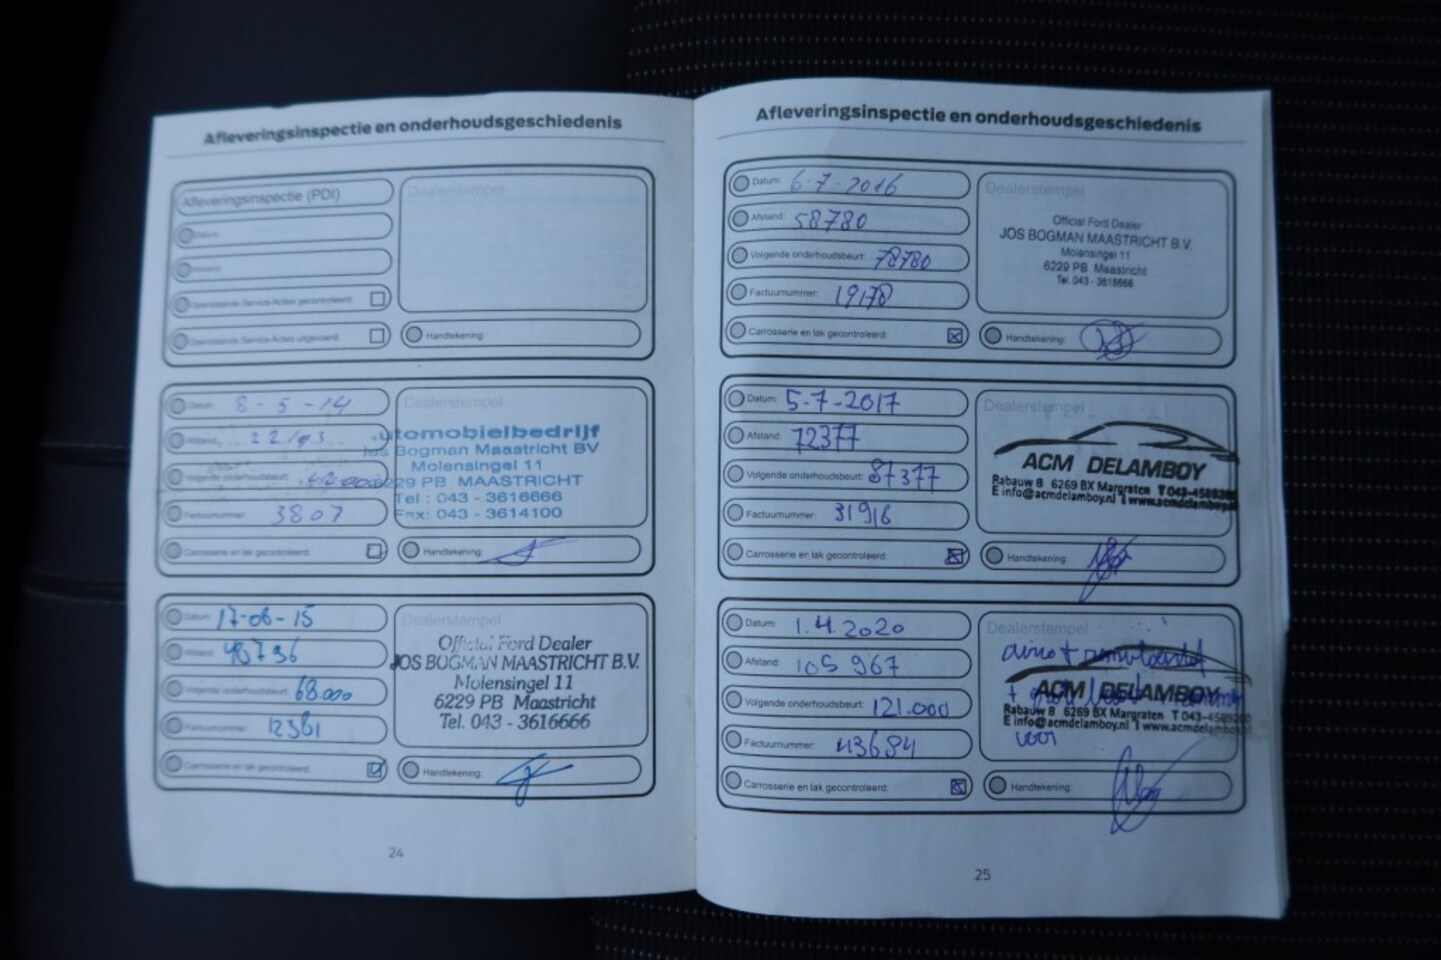 Afleveringsinspectie en onderhoudsgeschiedenis
Afleveringsinspectie (PDI)
Datum:
Afstand:
Openstaande Service-Acties gecontroleerd:
Openstaande Service-Acties uitgevoerd:
Dealerstempel
Handtekening:
Datum: 8-5-14
Afstand:
Volgende onderhoudsbeurt:
Factuurnummer: 3807
Carrosserie en lak gecontroleerd:
Dealerstempel
utomobielbedrijf
Jos Bogman Maastricht BV
Molensingel 11
6229 PB MAASTRICHT
Tel : 043 - 3616666
Fax: 043 - 3614100
Handtekening:
Datum: 17-06-15
Afstand: 48736
Volgende onderhoudsbeurt: 68.000
Factuurnummer: 12381
Carrosserie en lak gecontroleerd:
Dealerstempel
Official Ford Dealer
JOS BOGMAN MAASTRICHT B.V.
Molensingel 11
6229 PB Maastricht
Tel. 043 - 3616666
Handtekening:
24
Afleveringsinspectie en onderhoudsgeschiedenis
Datum: 6-7-2016
Afstand: 58780
Volgende onderhoudsbeurt: 78780
Factuurnummer: 19178
Carrosserie en lak gecontroleerd:
Dealerstempel
Official Ford Dealer
JOS BOGMAN MAASTRICHT B.V.
Molensingel 11
6229 PB Maastricht
Tel. 043 - 3616666
Handtekening:
Datum: 5-7-2017
Afstand: 72377
Volgende onderhoudsbeurt: 87377
Factuurnummer: 31916
Carrosserie en lak gecontroleerd:
Dealerstempel
ACM DELAMBOY
Rabauw 8 6269 BX Margraten
E info@acmdelamboy.nl I www.acmdelamboy
Handtekening:
Datum: 1.4.2020
Afstand: 105 967
Volgende onderhoudsbeurt: 121.000
Factuurnummer: 43684
Carrosserie en lak gecontroleerd:
Dealerstempel
ACM DELAMBOY
Rabauw 8 6269 BX Margraten T 043-
E info@acmdelamboy.nl I www.acmdelamboy
voor
Handtekening:
25